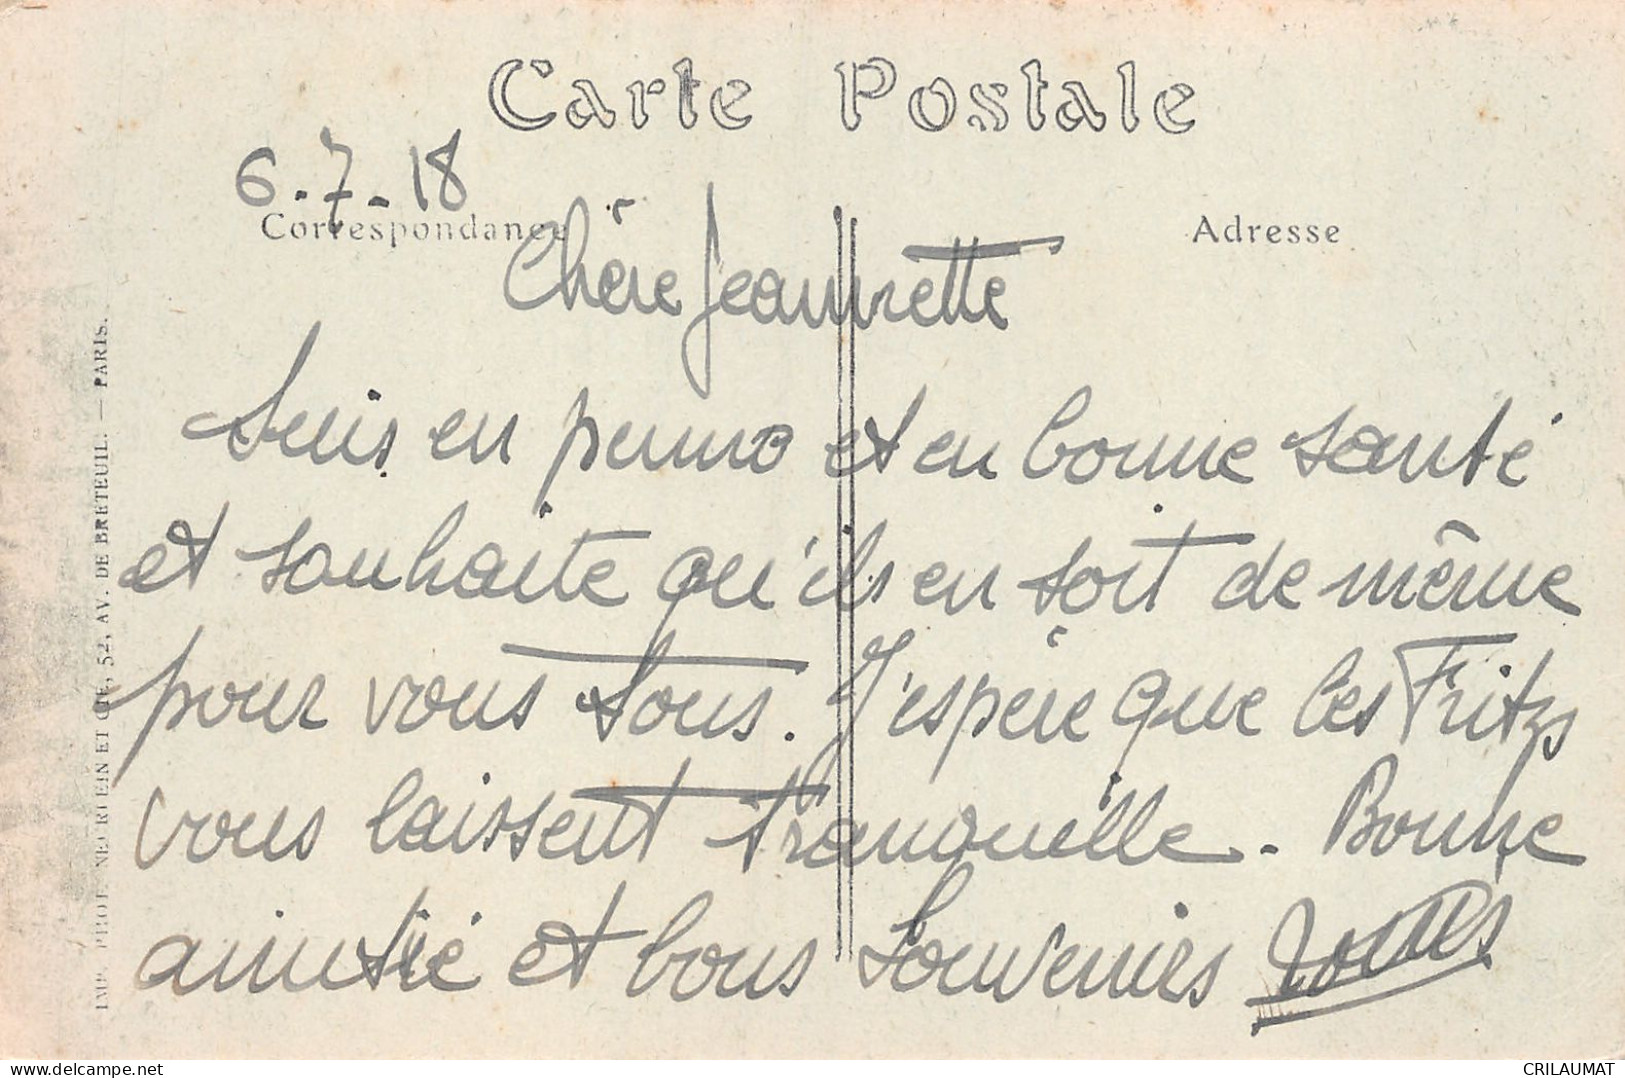 Carte Postale
6-7-18
Correspondance
Adresse
Chère Jeannette
Suis en permo et en bonne santé
et souhaite qu'ils en soit de même
pour vous tous. J'espère que les Fritzs
vous laissent tranquille. Bonne
amitié et bons souvenirs
IMP. PHOT. NEURDEIN ET CIE, 52, AV. DE BRETEUIL. — PARIS.
www.delcampe.net
CRILAUMAT